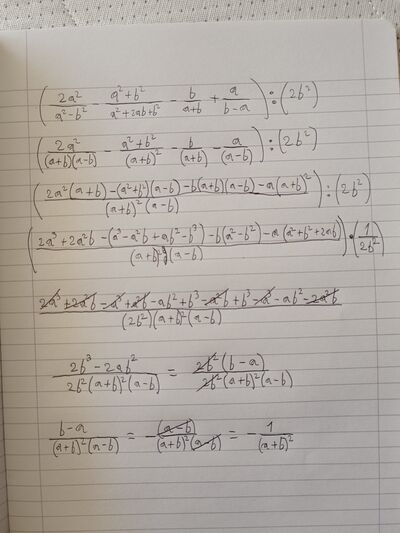 (2a²/(a²-b²) - (a²+b²)/(a²+2ab+b²) - b/(a+b) + a/(b-a)) : (2b²)
(2a²/((a+b)(a-b)) - (a²+b²)/(a+b)² - b/(a+b) - a/(a-b)) : (2b²)
((2a²(a+b) -(a²+b²)(a-b) -b(a+b)(a-b) -a(a+b)²)/((a+b)²(a-b))) : (2b²)
((2a³+2a²b -(a³-a²b+ab²-b³) -b(a²-b²) -a(a²+b²+2ab))/((a+b)²(a-b))) · (1/2b²)
(2a³+2a²b -a³+a²b -ab²+b³ -a²b+b³ -a³ -ab² -2a²b)/((2b²)(a+b)²(a-b))
(2b³-2ab²)/(2b²(a+b)²(a-b)) = (2b²(b-a))/(2b²(a+b)²(a-b))
(b-a)/((a+b)²(a-b)) = -(a-b)/((a+b)²(a-b)) = -1/(a+b)²